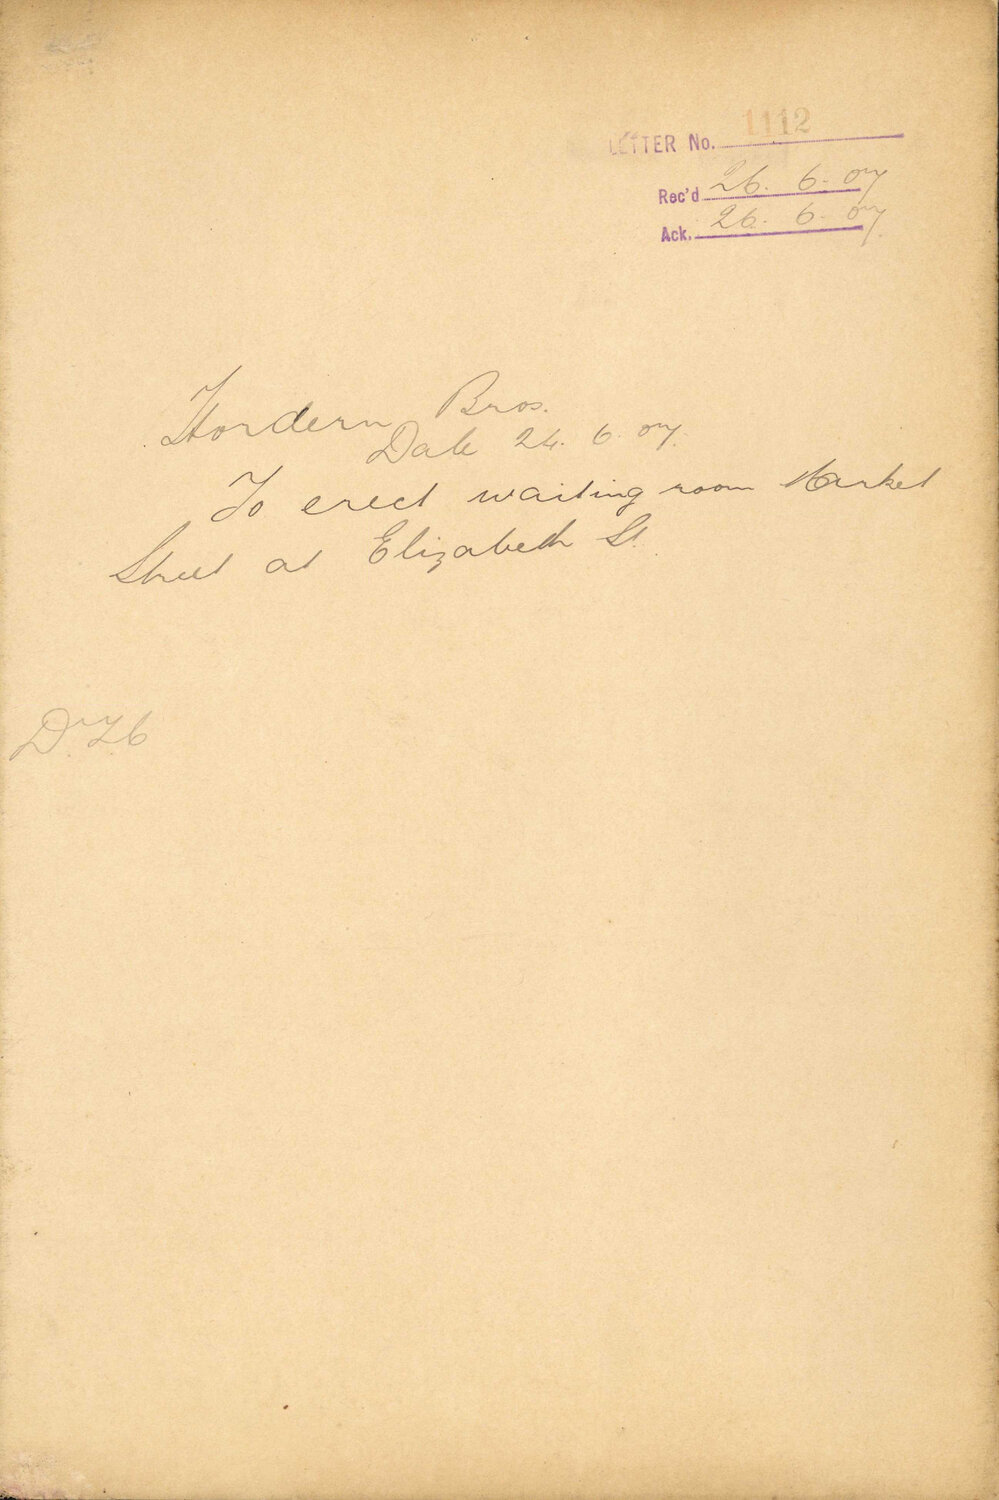 LETTER No. 1112
Rec'd 26. 6. 07
Ack. 26. 6. 07
Hordern Bros.
Date 24. 6. 07.
To erect waiting room Market
Street at Elizabeth St.